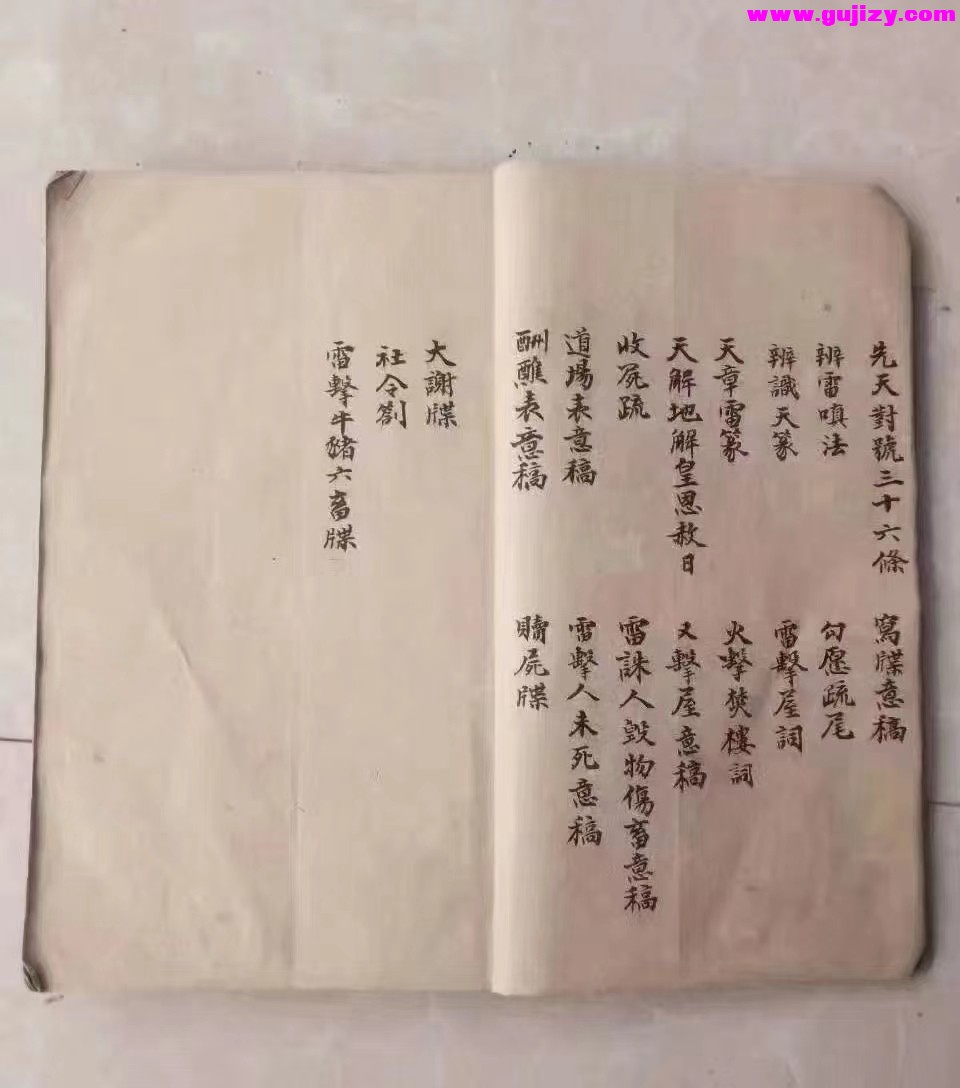 www.gujizy.com
先天對號三十六條
寫牒意稿
辨雷嗔法
勾愿疏尾
辨識天篆
雷擊屋詞
天章雷篆
火擊焚樓詞
天解地解皇恩赦日
又擊屋意稿
收屍疏
雷誅人毀物傷畜意稿
道場表意稿
雷擊人未死意稿
酬醮表意稿
贖屍牒
大謝牒
社令劄
雷擊牛豬六畜牒